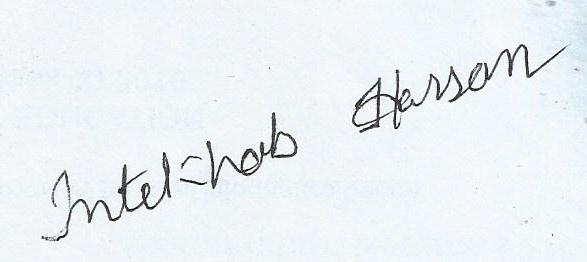 Intekhab Hassan